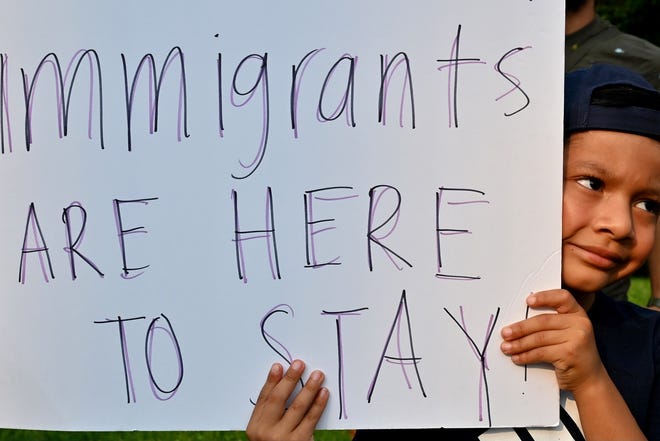 Immigrants
ARE HERE
TO STAY!